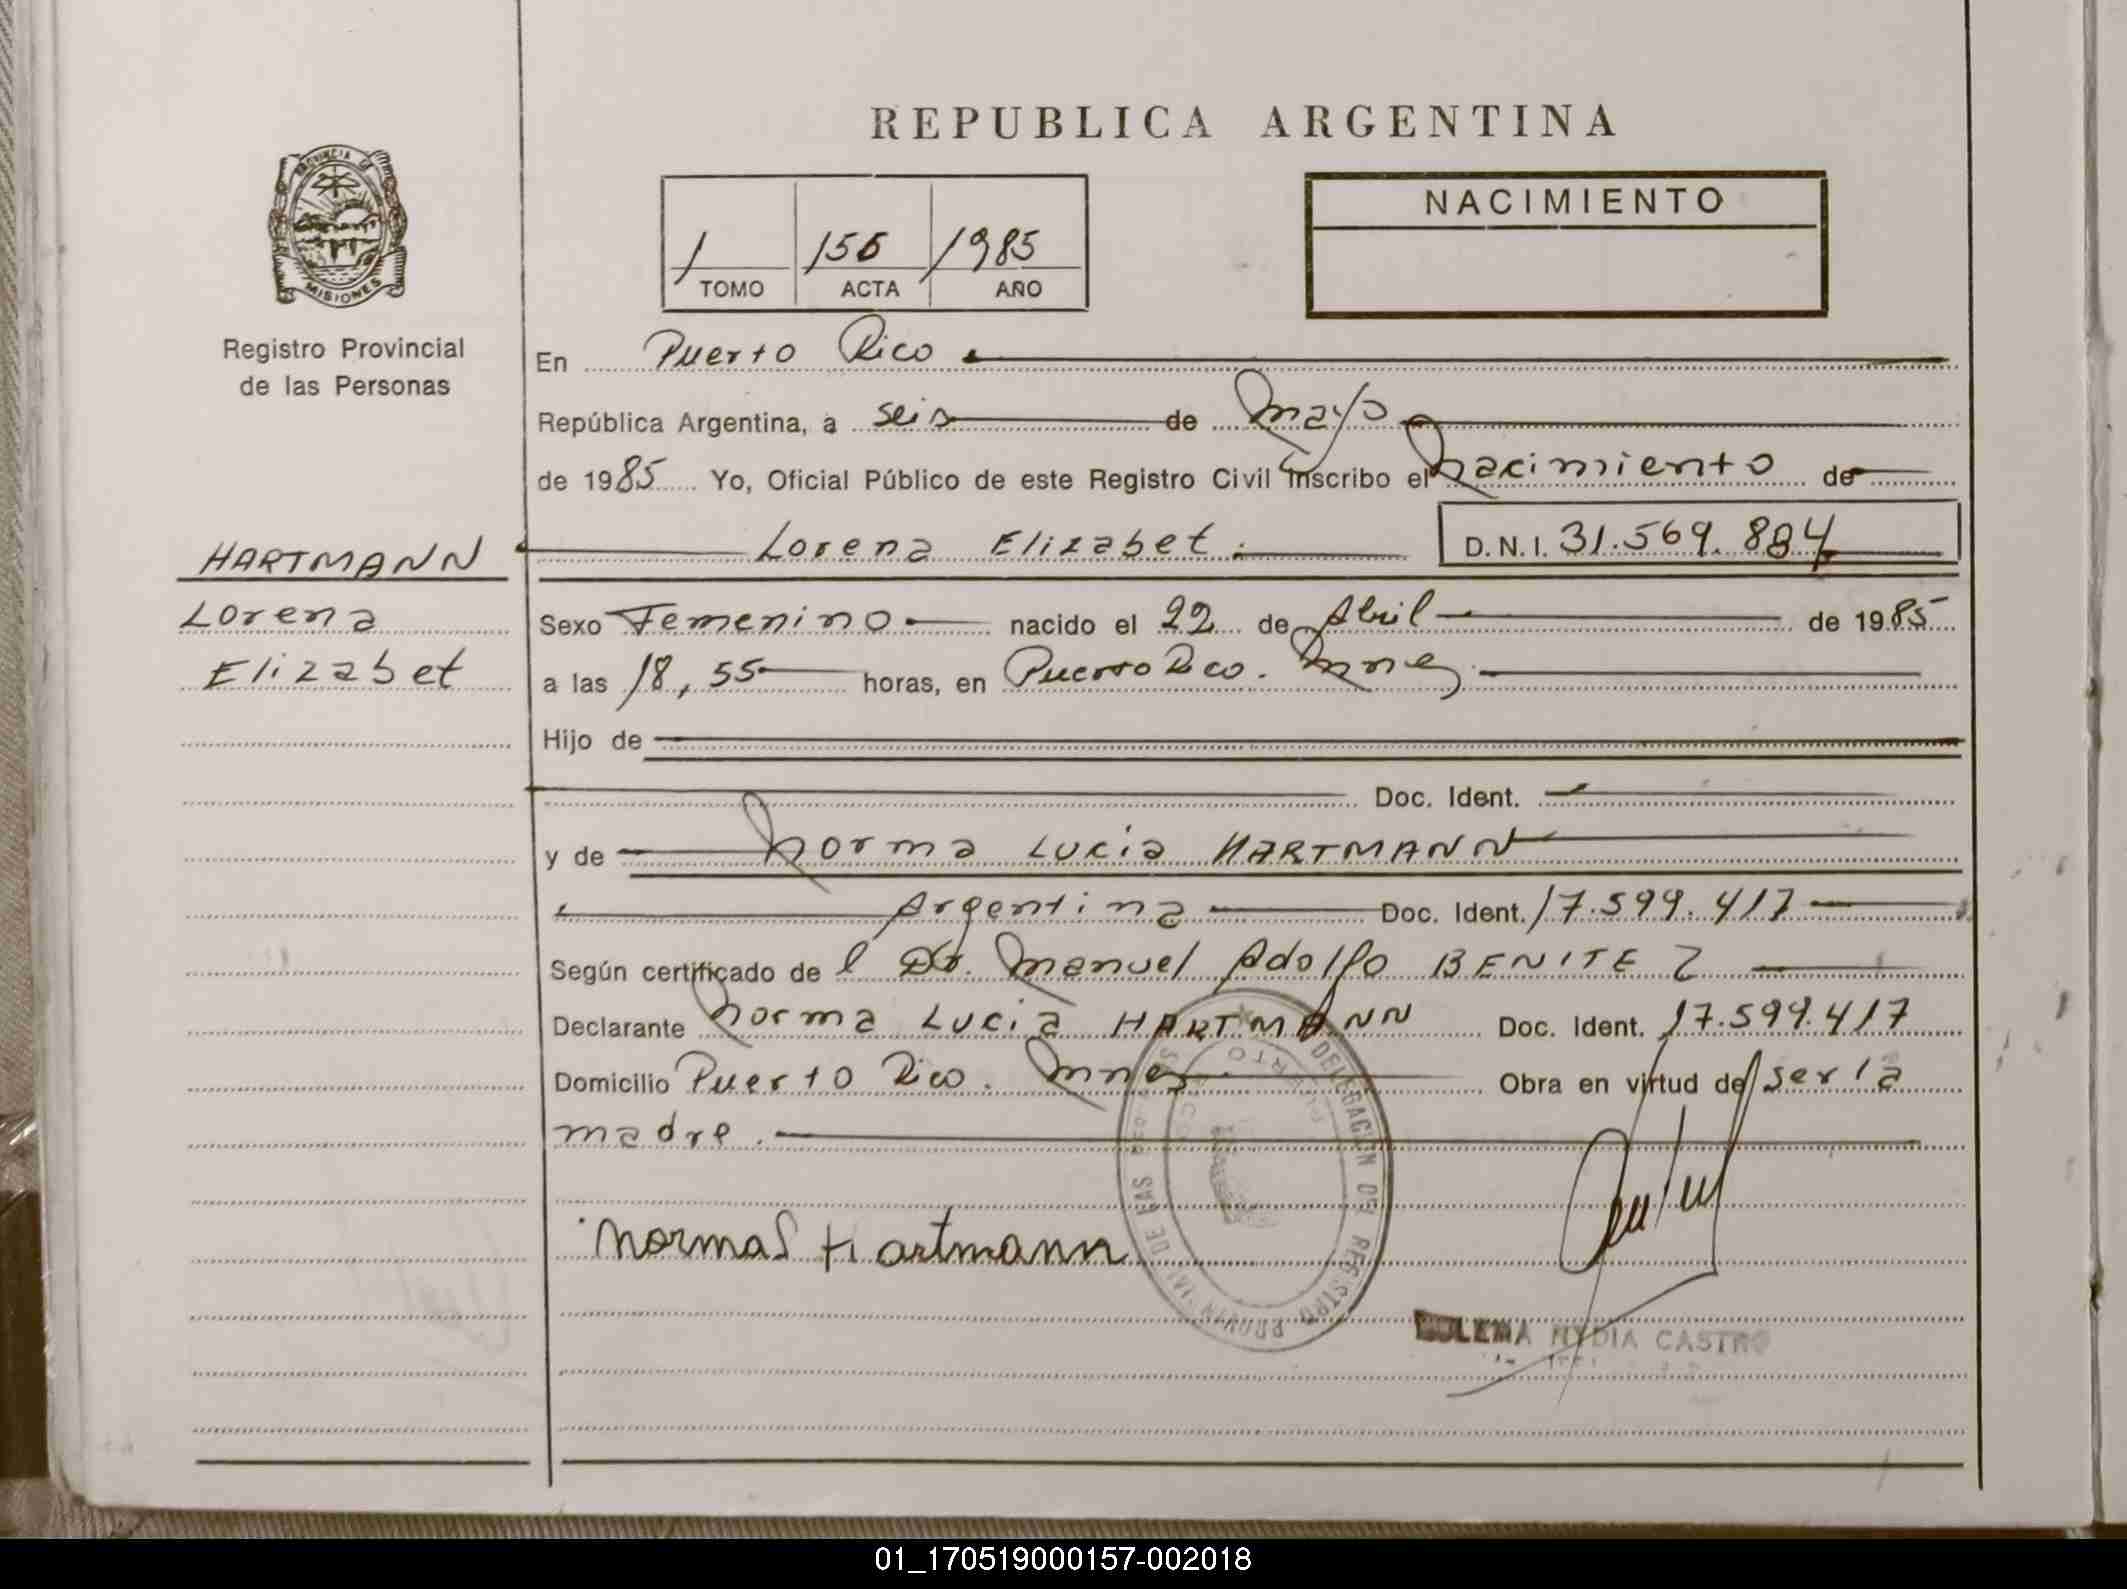 REPUBLICA ARGENTINA
PROVINCIA DE
MISIONES
Registro Provincial
de las Personas
NACIMIENTO
1 156 1985
TOMO ACTA AÑO
En Puerto Rico
República Argentina, a seis de mayo
de 1985 Yo, Oficial Público de este Registro Civil inscribo el nacimiento de
HARTMANN
Lorena
Elizabet
Lorena Elizabet. D.N.I. 31.569.884
Sexo Femenino nacido el 22 de Abril de 1985
a las 18,55 horas, en Puerto Rico. Mnes
Hijo de
Doc. Ident.
y de Norma Lucia HARTMANN
Argentina Doc. Ident. 17.599.417
Según certificado de l Dr. Manuel Adolfo BENITEZ
Declarante Norma Lucia HARTMANN Doc. Ident. 17.599.417
Domicilio Puerto Rico. Mnes. Obra en virtud de ser la
madre.
DELEGACION DEL REGISTRO PROVINCIAL DE LAS
PUERTO RICO
Norma Hartmann
NYDIA CASTRO
01_170519000157-002018